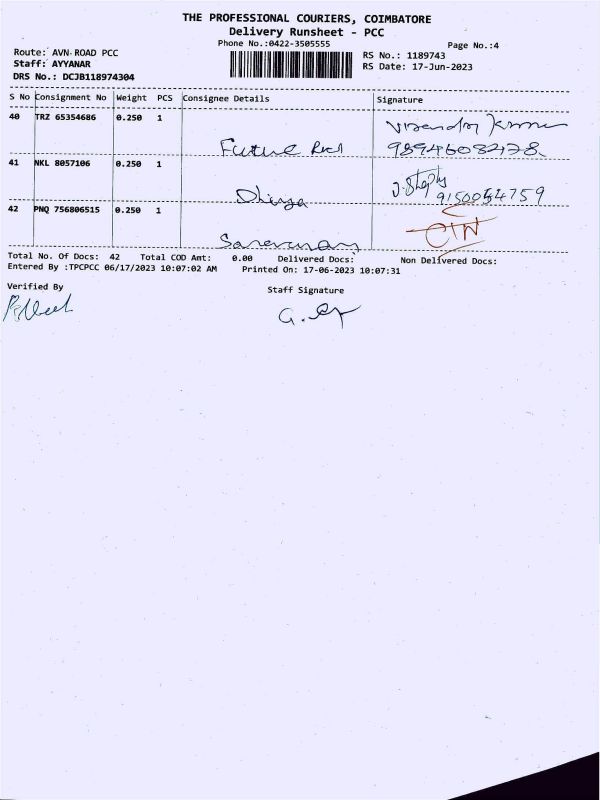 THE PROFESSIONAL COURIERS, COIMBATORE
Delivery Runsheet - PCC
Phone No.:0422-3505555
Page No.:4
Route: AVN ROAD PCC
Staff: AYYANAR
DRS No.: DCJB118974304
RS No.: 1189743
RS Date: 17-Jun-2023
S No Consignment No Weight PCS Consignee Details Signature
40 TRZ 65354686 0.250 1
Future
41 NKL 8057106 0.250 1
Dhivya
42 PNQ 756806515 0.250 1
Total No. Of Docs: 42 Total COD Amt: 0.00 Delivered Docs: Non Delivered Docs:
Entered By :TPCPCC 06/17/2023 10:07:02 AM Printed On: 17-06-2023 10:07:31
Verified By
Staff Signature